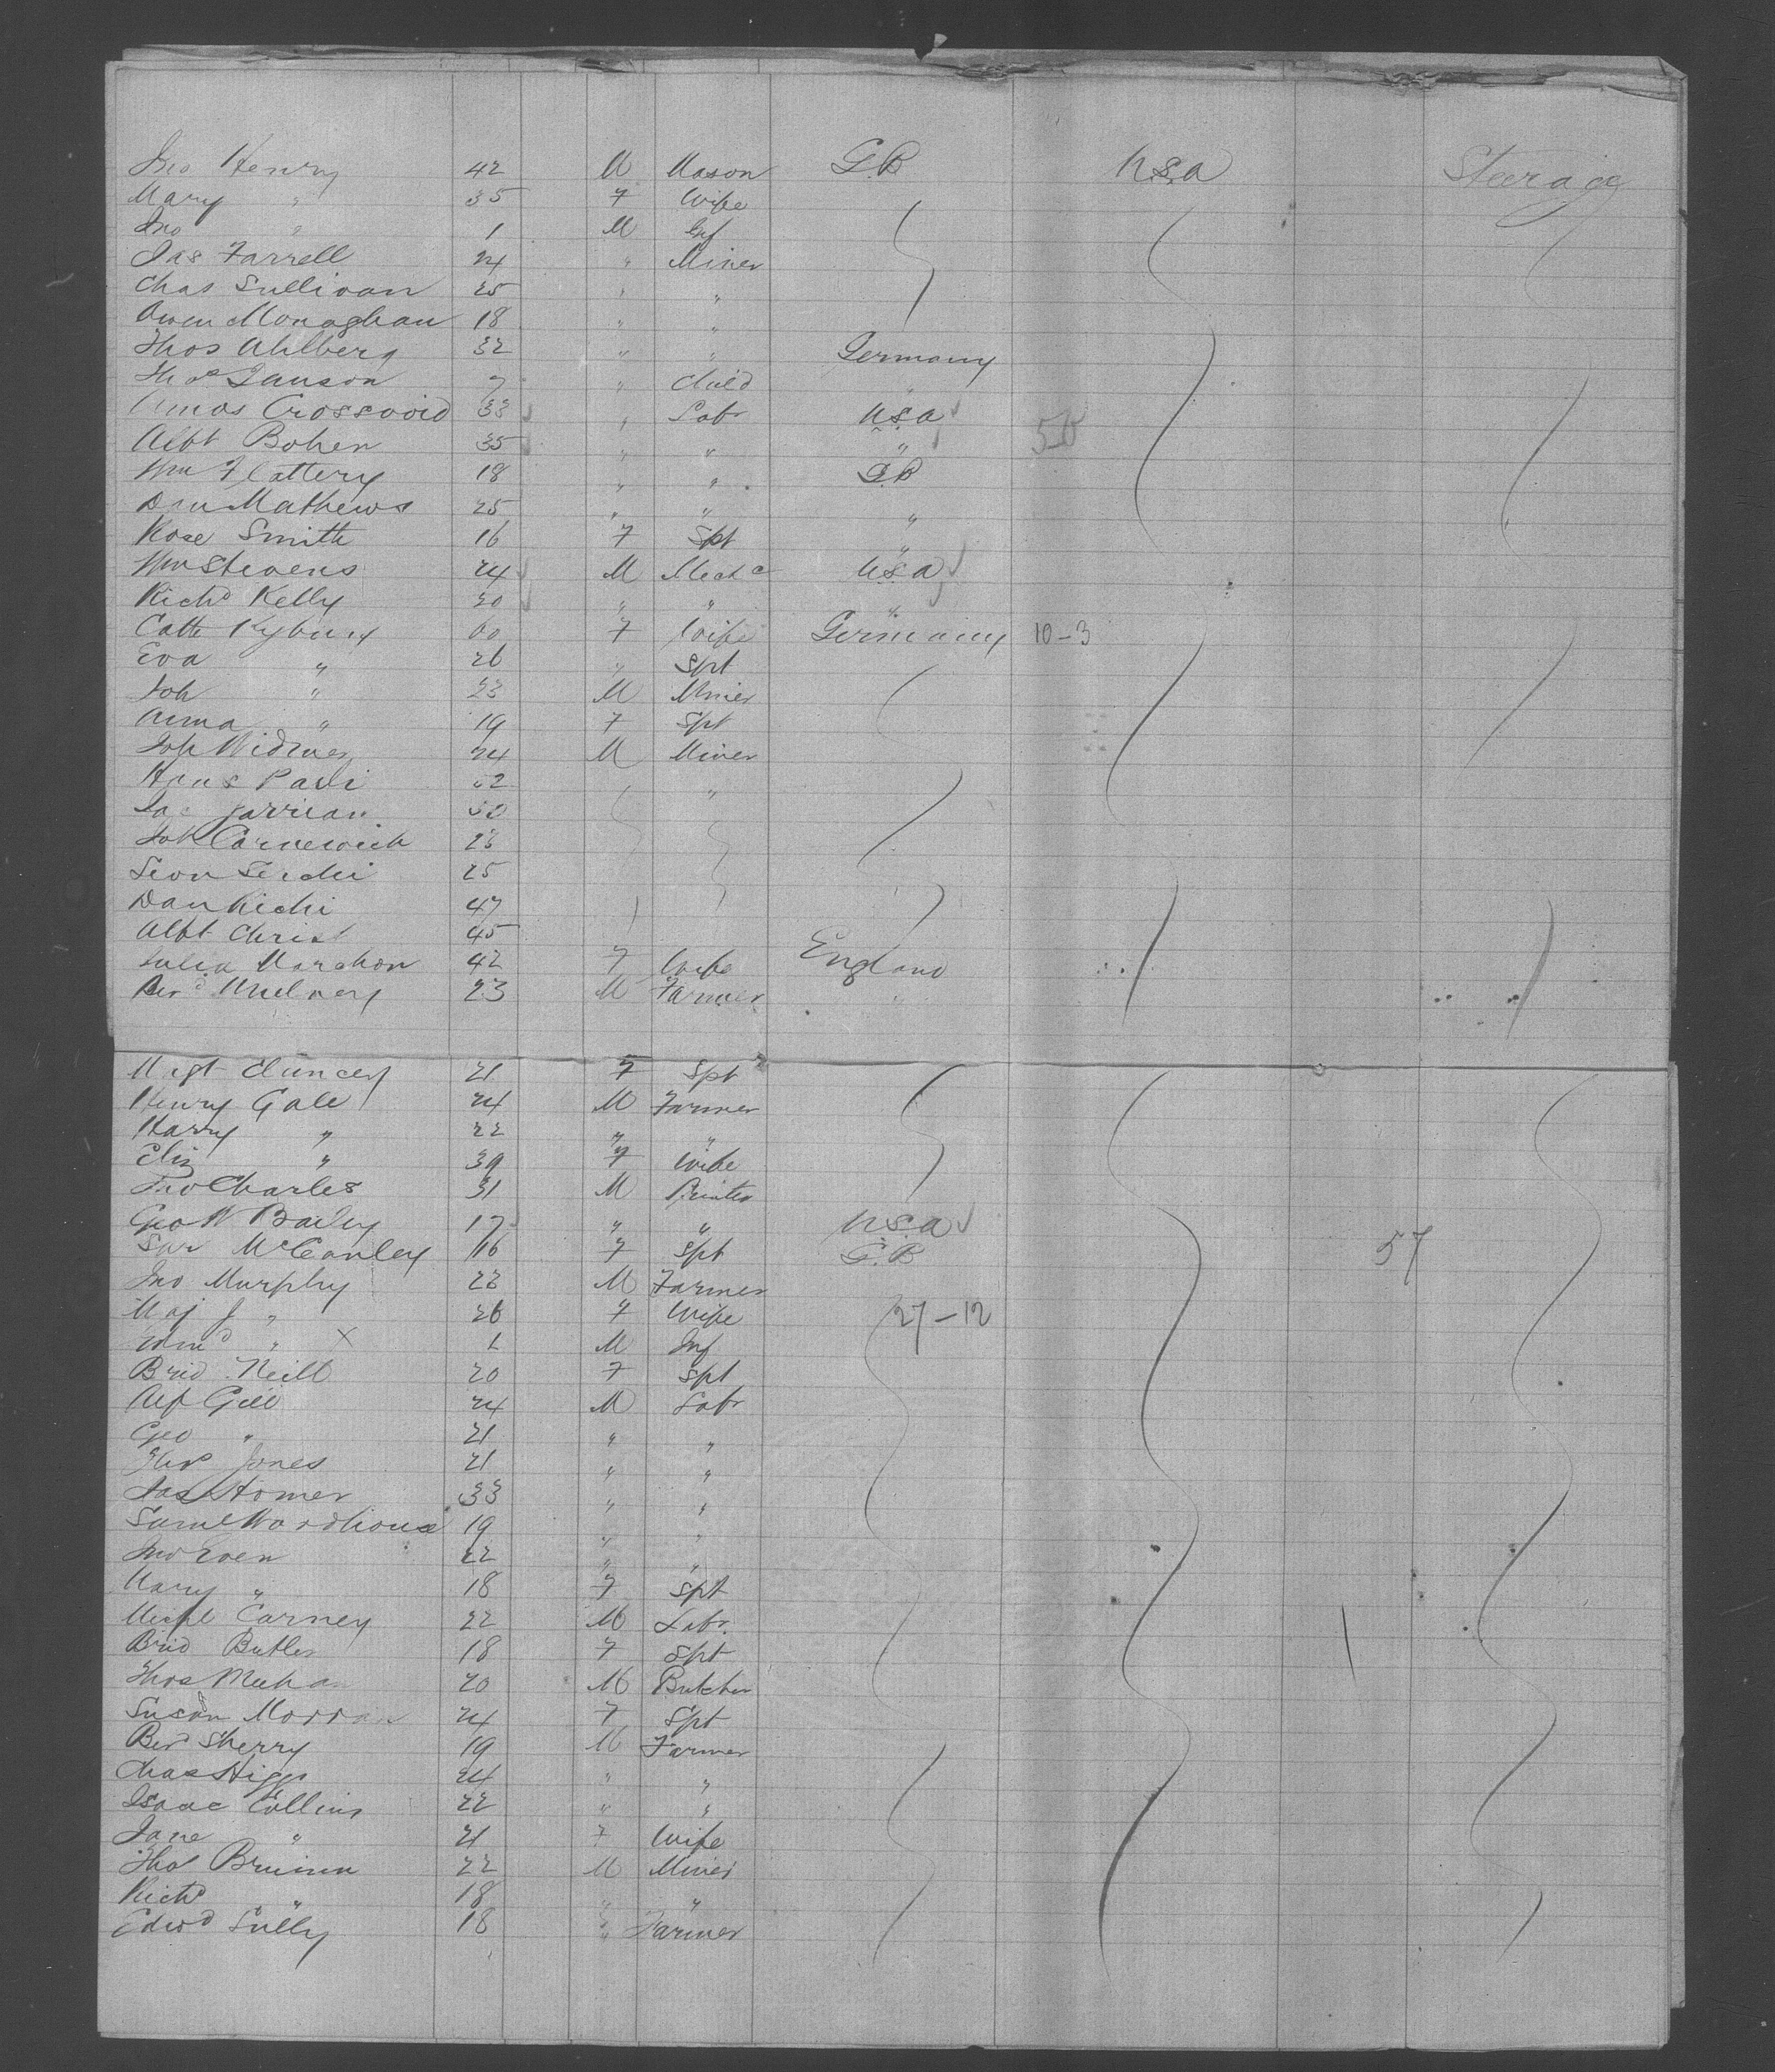 Jno Henry 42 M Mason G.B U.S.A Steerage
Mary " 35 F Wife
Jno " 1 M Inf
Jas Farrell 24 " Miner
Chas Sullivan 25 " "
Owen Monaghan 18 " "
Thos Ahlberg 32 " " Germany
Thos 7 " Child "
Amos 33 " Labr U.S.A
Albt Bohen 35 " " " 50
Wm Flattery 18 " " G.B
Dan Mathews 25 " " "
Rose Smith 16 F Spt "
Wm Stevens 24 M Mech c U.S.A
Richd Kelly 20 " " "
Cath 60 F Wife Germany 10-3
Eva " 26 " Spt
Joh " 23 M Miner
Anna " 19 F Spt
Joh Widmer 24 M Miner
Hans "
Joh
Leon 25
Dan 47
Albt Christ 45
Julia Marchon 42 F Wife England
23 M Farmer "
Mgt 21 F Spt
Henry Gale 24 M Farmer
Harry " 22 " "
Eliz " 39 F Wife
Jno Charles 31 M Printer
Geo W Bailey 17 " " U.S.A
Sar McCauley 16 F Spt G.B 57
Jno Murphy 22 M Farmer
J " 26 F Wife 27-12
" X 1 M Inf
Brid Neill 20 F Spt
Alf Gill 24 M Labr
Geo " 21 " "
Thos Jones 21 " "
Jas Homer 33 " "
Saml Wordhouse 19 " "
Jno 22 " "
Mary " 18 F Spt
Michl Carney 22 M Labr.
Brid Butler 18 F Spt
Thos 20 M Butcher
Susan 24 F Spt
Berd Sherry 19 M Farmer
Chas Higgs 24 " "
Isaac Collins 22 " "
Jane " 21 F Wife
Thos 22 M Miner
Richd " 18 " "
Edwd 18 " Farmer